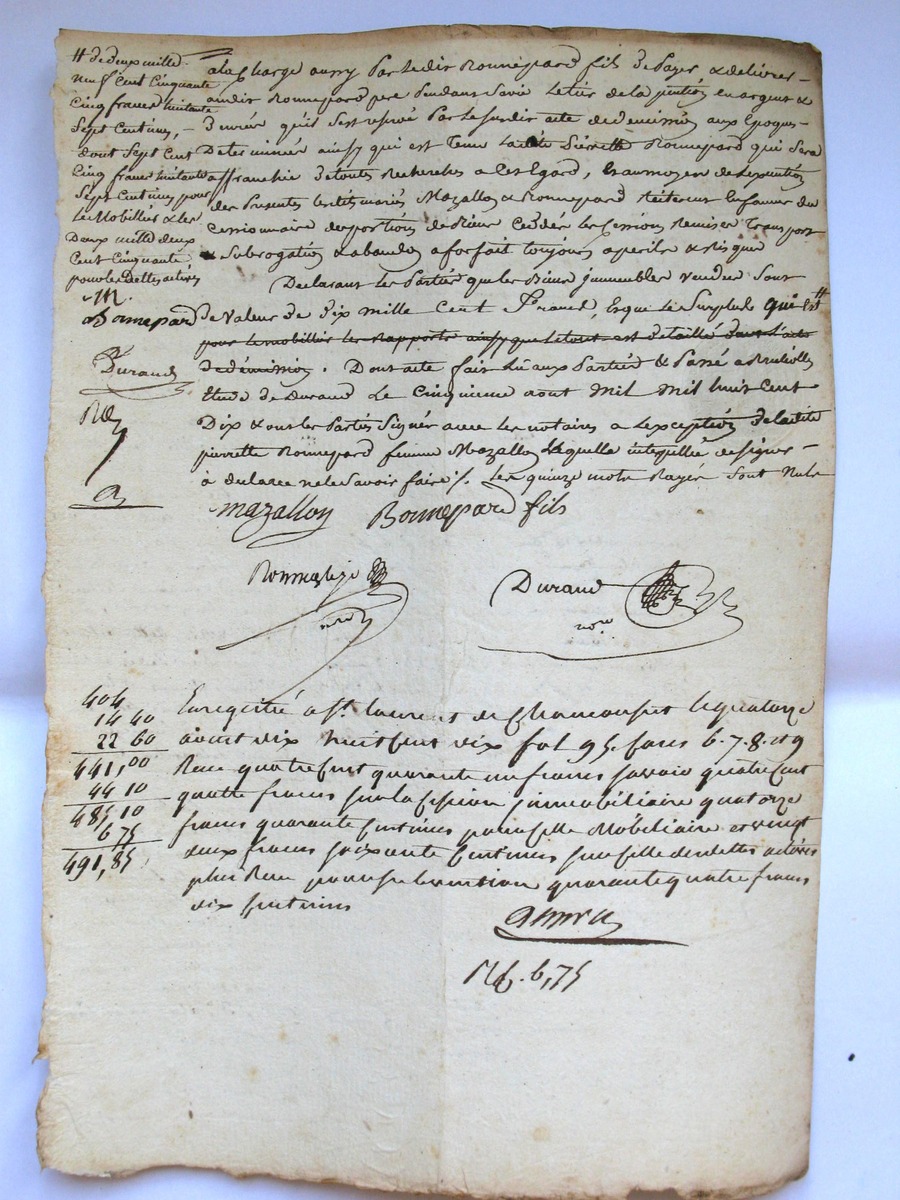 # de deux mille
neuf Cent Cinquante
Cinq francs huitante
Sept Centimes, —
dont Sept Cent
Cinq francs huitante
Sept Centimes pour
Le Mobillier & les
Deux mille deux
Cent Cinquante
pour les Dettes actives
M.
Bonnepard
Durand
a la Charge aussy Par ledit Bonnepard fils de Payer & delivrer —
audit Bonnepard pere Pendant Sa vie Le tier de la pention en argent &
Denrée qu'il s'est reservé Par Le Susdit acte de demission aux Epoques
Determinée ainsy qui est Tenu Laditte Pierrette Bonnepard qui Sera
affranchie De toutes Recherches a Cet Egard, Et au moyen de L'exention
des Presentes lesdits mariés Mazallon & Bonnepard
Cessionnaire des portions de Biens Ceddés les Cession Remise Transport
& Subrogation & abandon a forfait toujours a perils & Risque
Declarant les Parties que les Biens Immeubles Vendus Sont
de Valeur de Dix mille Cent Francs, Et que Le Surplus qui Est #
pour le mobillier les rapporte ainsy que le tout est détaillé dans l'acte
de démission. Dont acte fait Lu aux Parties & Passé a
Etude de Durand Le Cinquieme aout Mil Mil huit Cent
Dix & ont les Parties Signé avec Les notaires a L'exception de laditte
pierrette Bonnepard femme Mazallon Laquelle interpellée de signer —
à declaree ne le Savoir faire /. Les quinze mots Rayés Sont Nuls
Mazallon Bonnepard fils
Durand
nore
404
14 40
22 60
441,00
44 10
485,10
6 75
491,85
Enregistré a St. Laurent de Chamousset le quatorze
aout dix huit Cent dix fol 95. Cases 6. 7. 8. et 9
Reçu quatre Cent quarante un francs savoir quatre Cent
quatre francs sur la Cession immobiliaire quatorze
francs quarante Centimes pour Celle Mobiliaire et vingt
deux francs soixante Centimes pour Celle des dettes actives
plus Reçu pour subvention quarante quatre francs
dix Centimes
6,75